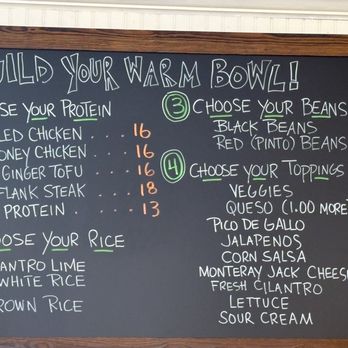 UILD YOUR WARM BOWL!
SE YOUR PROTEIN
LED CHICKEN . . . 16
ONEY CHICKEN . 16
GINGER TOFU . 16
FLANK STEAK . 18
PROTEIN . . . . 13
OSE YOUR RICE
ANTRO LIME
WHITE RICE
ROWN RICE
3 CHOOSE YOUR BEANS
BLACK BEANS
RED (PINTO) BEANS
4 CHOOSE YOUR TOPPINGS
VEGGIES
QUESO (1.00 MORE
PICO DE GALLO
JALAPENOS
CORN SALSA
MONTERAY JACK CHEESE
FRESH CILANTRO
LETTUCE
SOUR CREAM